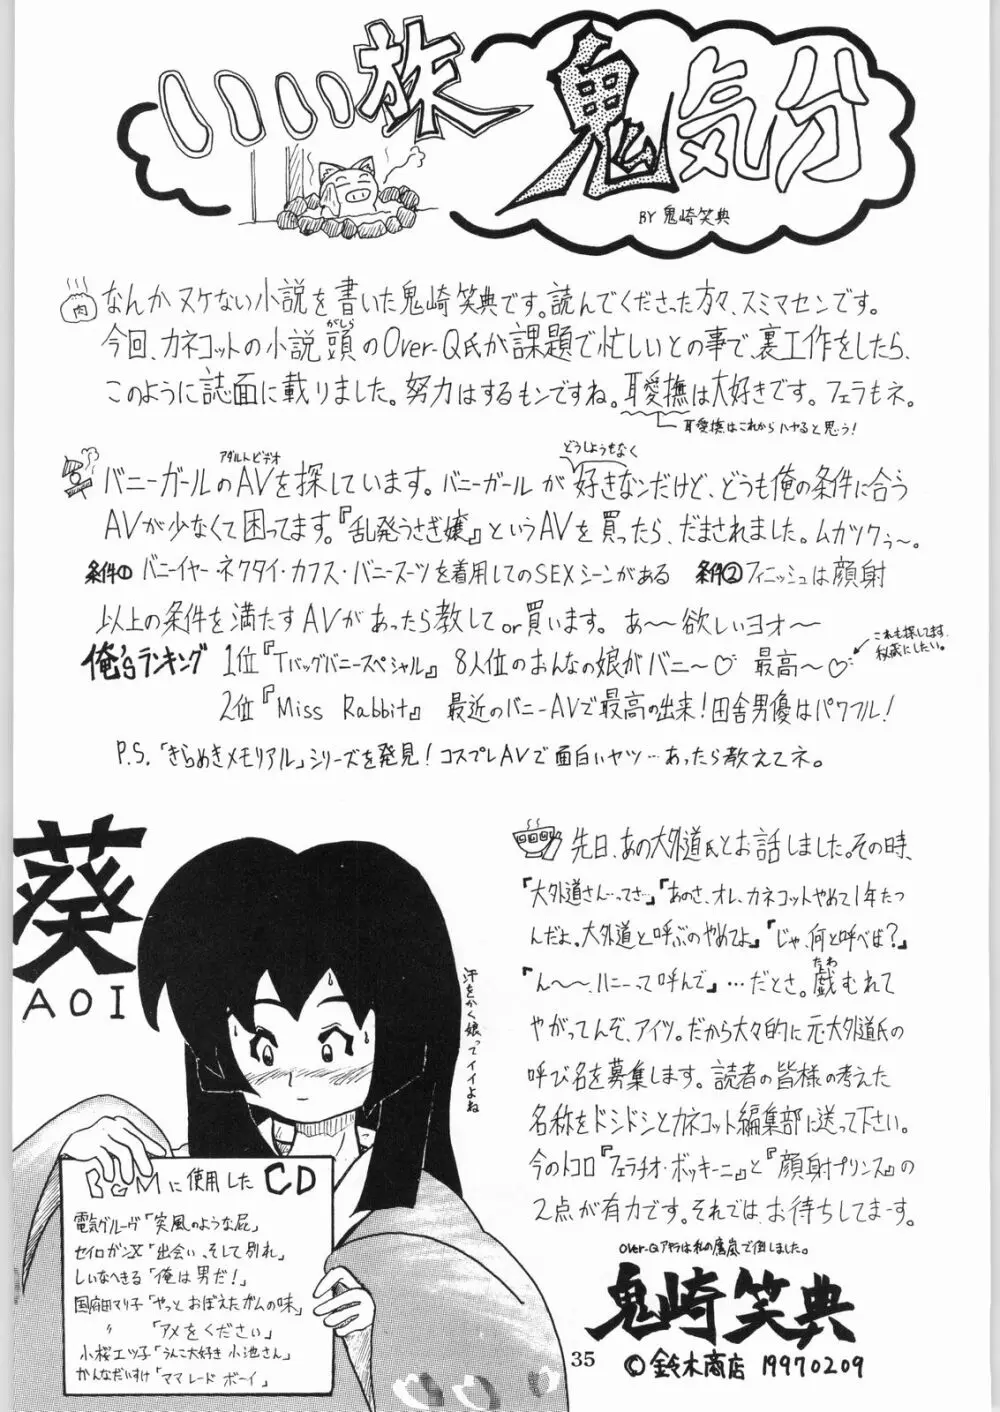 いい旅 鬼気分
BY 鬼崎笑典
肉
なんかヌケない小説を書いた鬼崎笑典です。読んでくださった方々、スミマセンです。
今回、カネコットの小説頭のOver-Q氏が課題で忙しいとの事で、裏工作をしたら、
がしら
このように誌面に載りました。努力はするもンですね。耳愛撫は大好きです。フェラもネ。
耳愛撫はこれからハヤると思う!
アダルトビデオ
どうしようもなく
バニーガールのAVを探しています。バニーガールが好きなンだけど、どうも俺の条件に合う
AVが少なくて困ってます。『乱発うさぎ嬢』というAVを買ったら、だまされました。ムガツクぅ〜。
条件① バニーイヤー・ネクタイ・カフス・バニースーツを着用してのSEXシーンがある 条件② フィニッシュは顔射
以上の条件を満たすAVがあったら教して or 買います。あ〜欲しいヨオ〜
俺'sランキング 1位『Tバッグバニースペシャル』 8人位のおんなの娘がバニ〜♡ 最高〜♡
これも探してます。
秘蔵にしたい。
2位『Miss Rabbit』 最近のバニーAVで最高の出来!田舎男優はパワフル!
P.S.「きらめきメモリアル」シリーズを発見!コスプレAVで面白いヤツ…あったら教えてネ。
葵
AOI
汗をかく娘ってイイよね
BGMに使用したCD
電気グルーヴ「突風のような屁」
セイロガンX「出会い、そして別れ」
しいなへきる「俺は男だ!」
国府田マリ子「やっとおぼえたガムの味」
〃 「アメをください」
小桜エツ子「うんこ大好き小池さん」
かんなだいすけ「ママレードボーイ」
先日、あの大外道氏とお話しました。その時、
『大外道さん…てさ…』『あのさ、オレ、カネコットやめて1年たつ
んだよ。大外道と呼ぶのやめてよ。』『じゃ、何と呼べば?』
『ん〜〜、ハニーって呼んで』…だとさ。戯むれて
たわ
やがってんぞ、アイツ。だから大々的に元大外道氏の
呼び名を募集します。読者の皆様の考えた
名称をドシドシとカネコット編集部に送って下さい。
今のトコロ『フェラチオ・ボッキーニ』と『顔射プリンス』の
2点が有力です。それでは、お待ちしてまーす。
Over-Qアキラは私の鷹嵐で倒しました。
鬼崎笑典
©鈴木商店 19970209
35